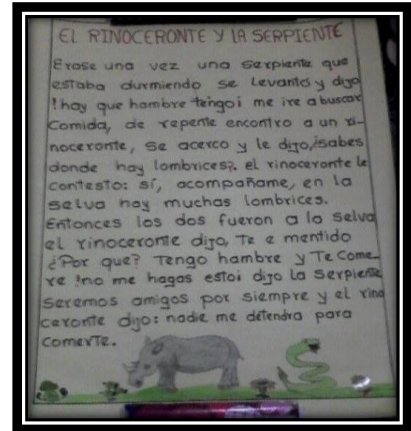 EL RINOCERONTE Y LA SERPIENTE
Erase una vez una serpiente que
estaba durmiendo se levanto y dijo
!hay que hambre tengo¡ me ire a buscar
Comida, de repente encontro a un ri-
noceronte, se acerco y le dijo,¿sabes
donde hay lombrices?. el rinoceronte le
contesto: sí, acompañame, en la
selva hay muchas lombrices.
Entonces los dos fueron a la selva
el rinoceronte dijo, Te e mentido
¿Por que? Tengo hambre y Te Come_
re !no me hagas esto¡ dijo la serpiente
seremos amigos por siempre y el rino
ceronte dijo: nadie me detendra para
comerte.